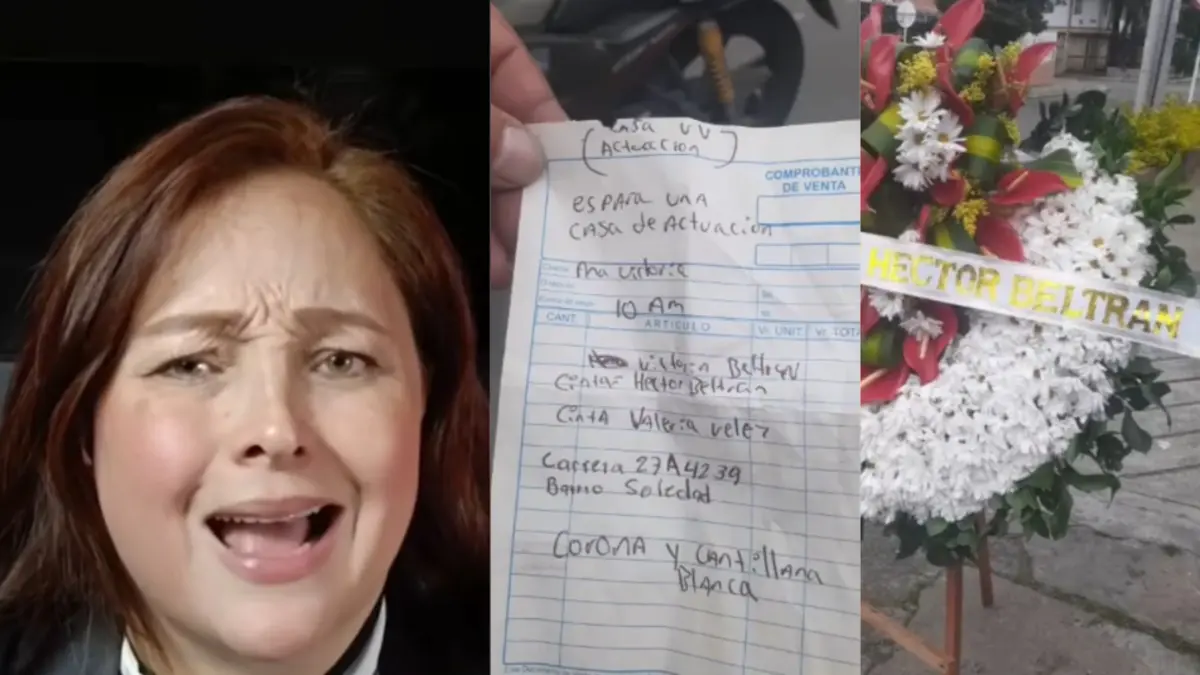 CASA VV
(Actuacion)
COMPROBANTE
DE VENTA
ESPARA UNA
CASA de Actuación
Ana victoria
10 AM
CANT.
ARTICULO
Vr. UNIT
Vr. TOTA
victoria Beltran
Cinta- Hector Beltran
Cinta Valeria velez
Carrera 27A 42 39
Barrio Soledad
CORONA Y Cantillana
BLANCA
HECTOR BELTRAN